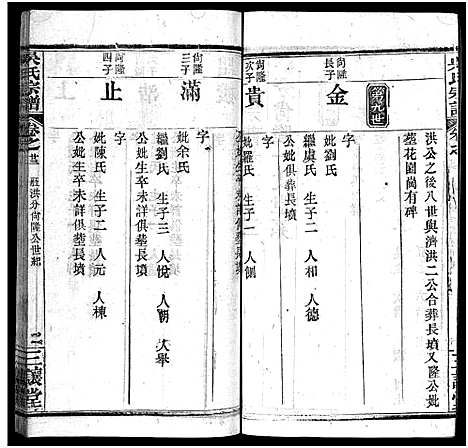 洪公之後八世與濟洪二公合葬長墳又隆公妣
塟花園尚有碑
第九世
尚隆
長子
金
字
妣劉氏
繼虞氏 生子二 人相 人德
公妣俱葬長墳
尚隆
次子
貴
妣羅氏 生子一 人側
尚隆
三子
滿
字
妣余氏
繼劉氏 生子三 人悅 人朝 人舉
公妣生卒未詳俱塟長墳
尚隆
四子
止
字
妣陳氏 生子二 人元 人棟
公妣生卒未詳俱塟長墳
吳氏宗譜
卷之
莊洪分尚隆公世系
三讓堂